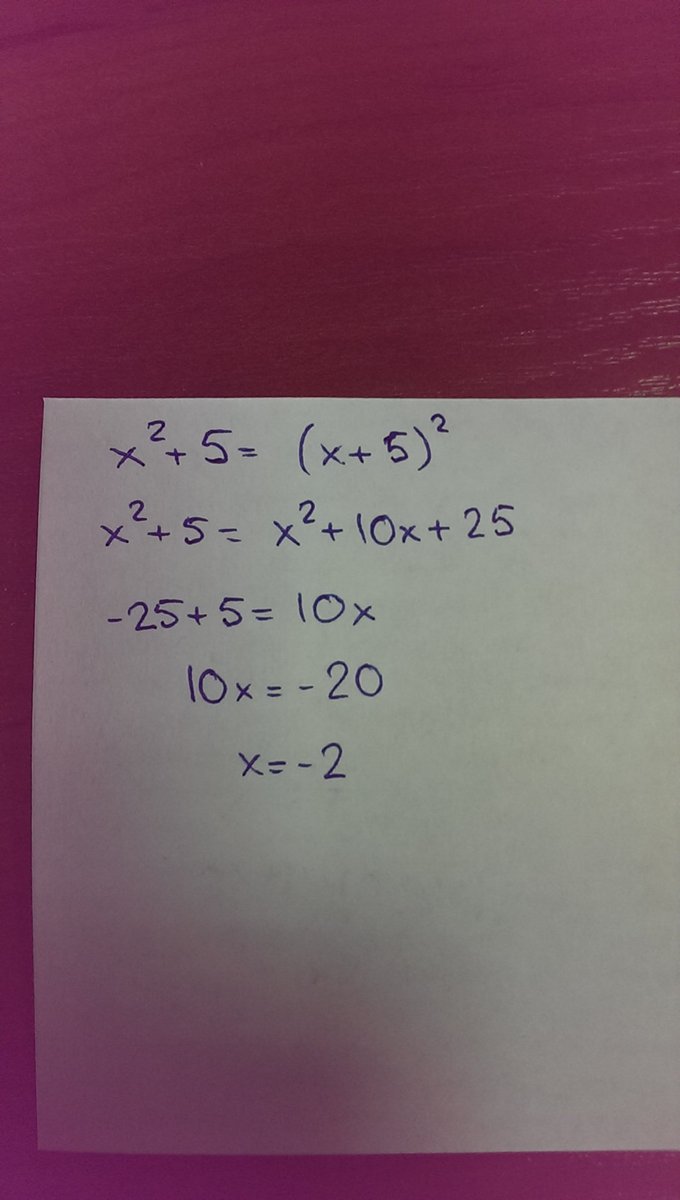 x²+5= (x+5)²
x²+5= x²+10x+25
-25+5=10x
10x=-20
x=-2